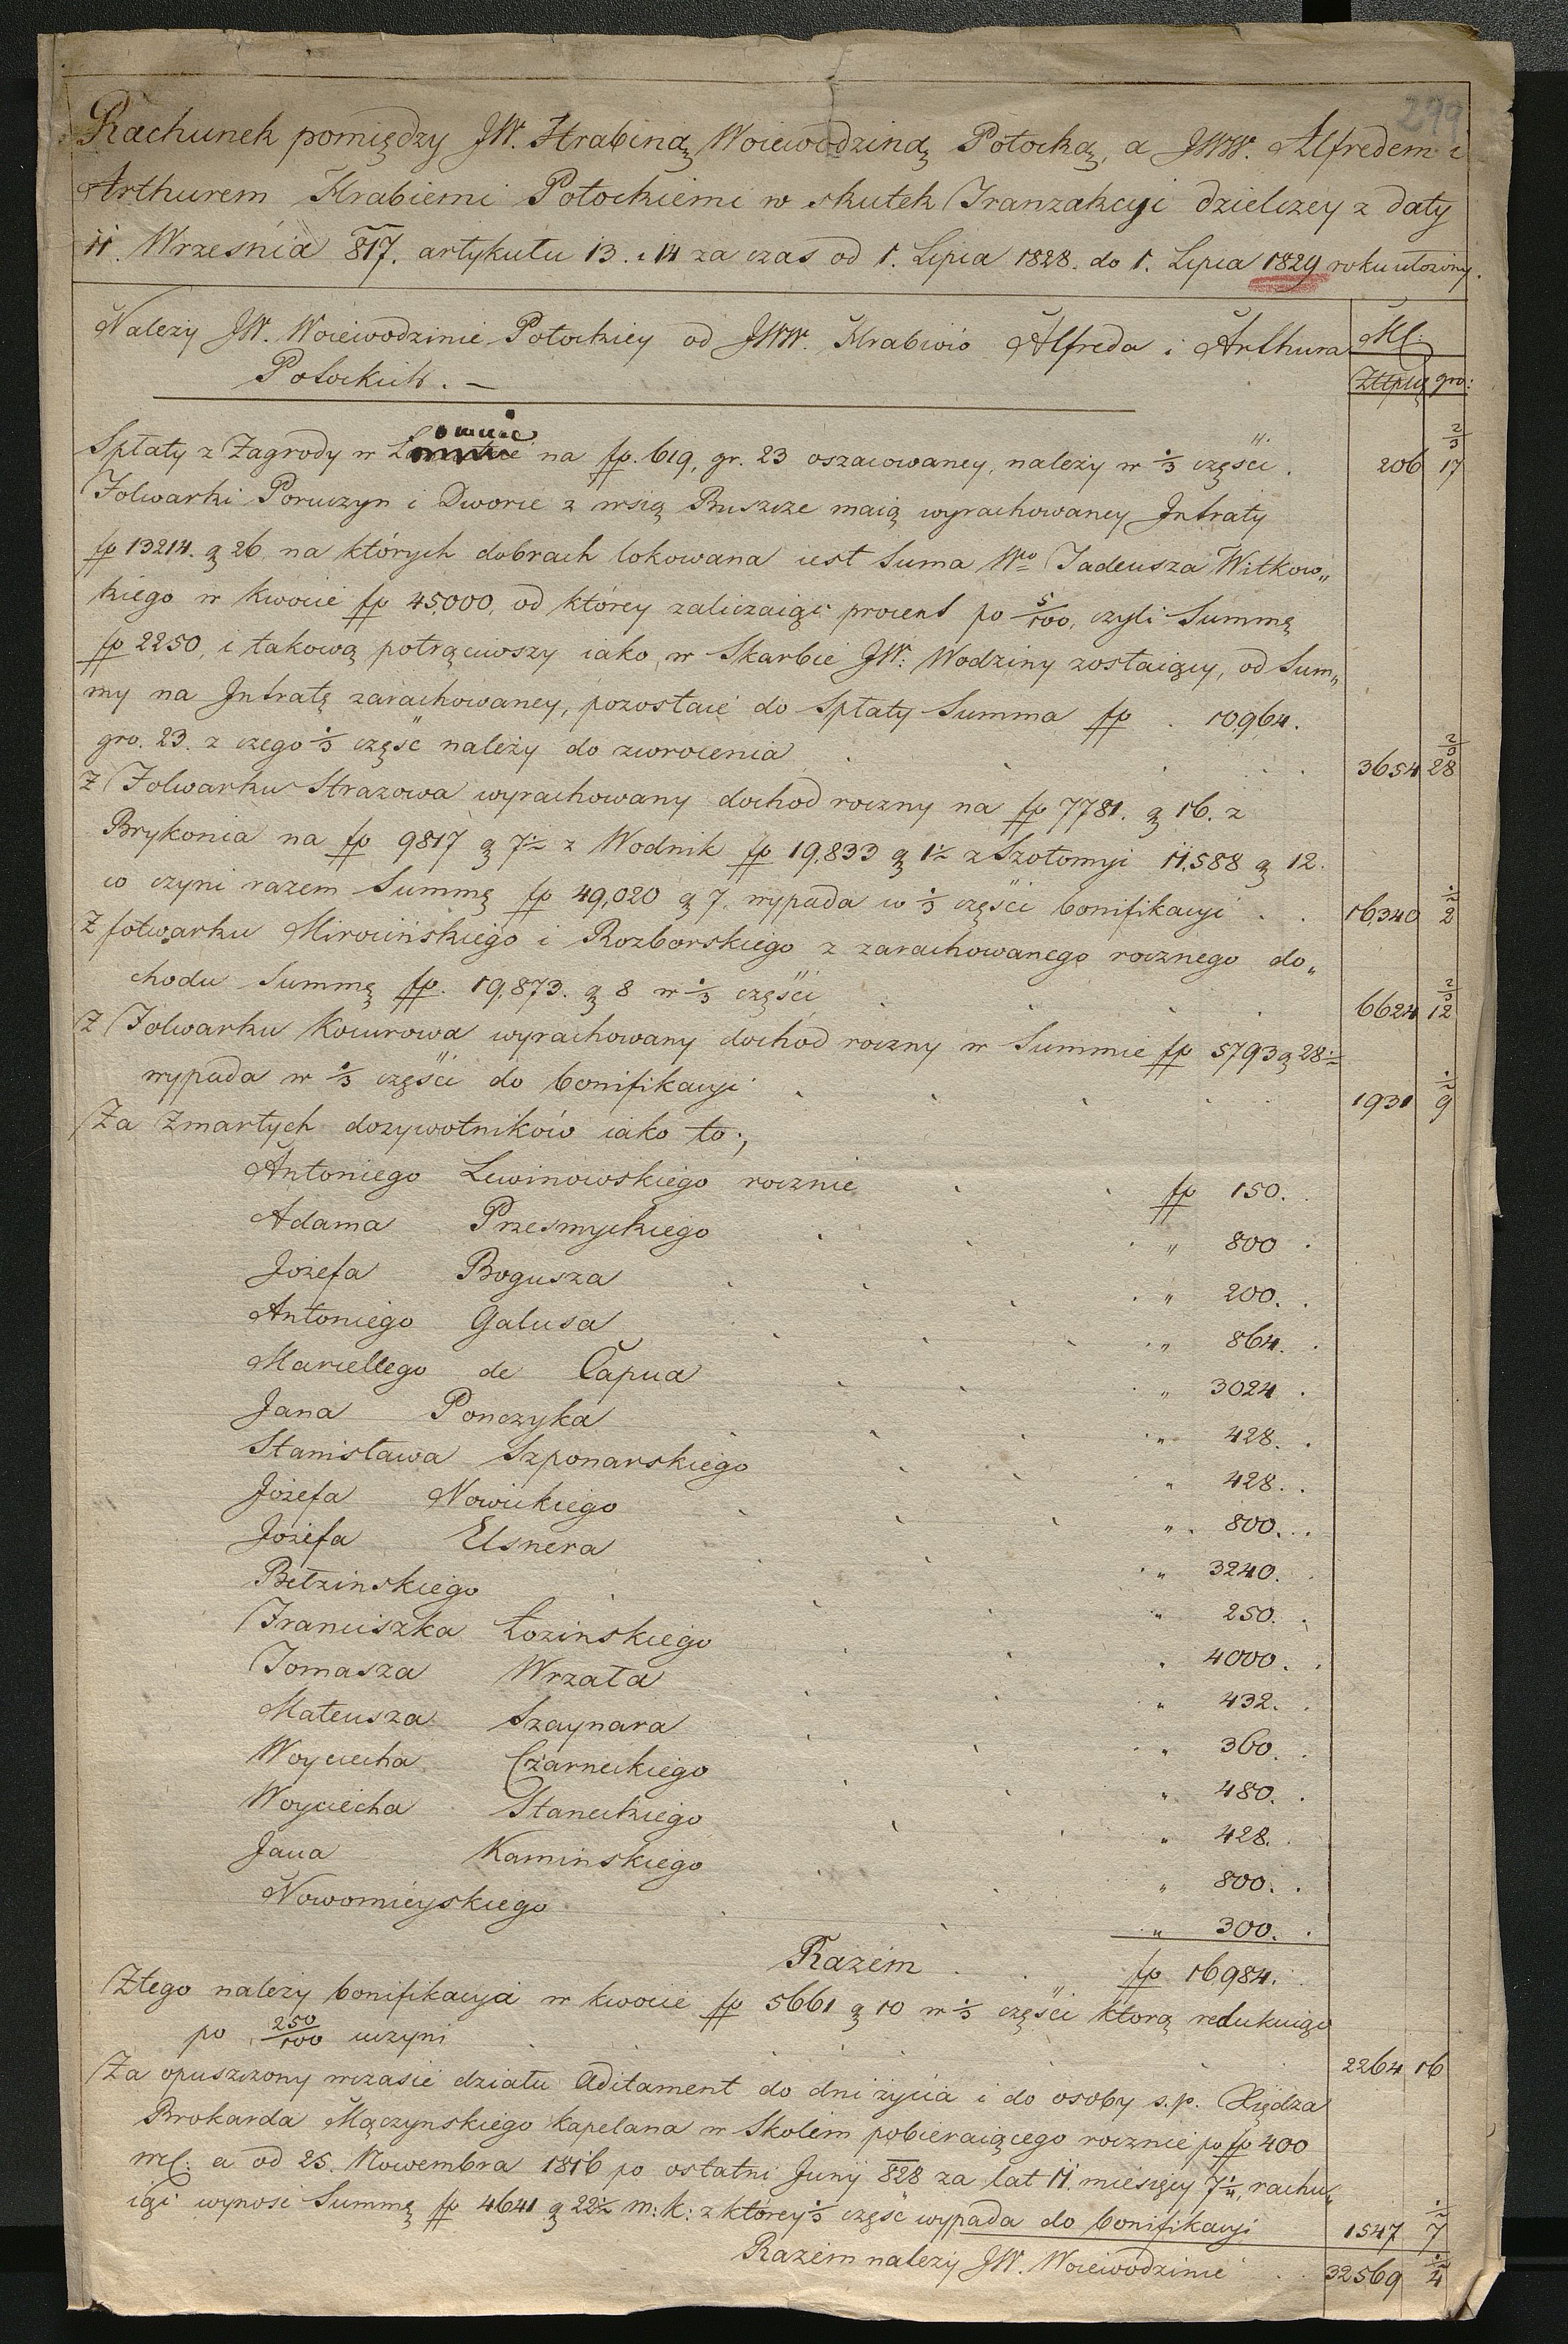 299
Rachunek pomiędzy JW. Hrabiną Woiewodziną Potocką, a JWW. Alfredem i
Arthurem Hrabiemi Potockiemi w skutek Tranzakcyi dzielczey z daty
11. Września 817. artykułu 13. i 14 za czas od 1. Lipca 1828. do 1. Lipca 1829 roku ułożony.
Należy JW. Woiewodzinie Potockiey od JWW. Hrabiów Alfreda i Arthura
Potockich. —
M.C.
Złłpuą gro:
Spłaty z Zagrody w na fp. 619, gr. 23 oszacowaney, należy w 1/3 części . 206 17 2/3
Folwarki Poruczyn i Dworce z wsią Buszcze maią wyrachowaney Intraty
fp 13214. g 26 na których dobrach lokowana iest Suma Wgo Tadeusza Witkow„
kiego w kwocie fp 45000, od którey zaliczaiąc procent po 5/100, czyli Summę
fp 2250, i takową potrąciwszy iako w Skarbie JW: Wodziny zostaiący, od Sum„
my na Intratę zarachowaney, pozostaie do Spłaty Summa fp . 10964.
gro. 23. z czego 1/3 część należy do zwrocenia . . . . . 3654 28 2/3
Z Folwarku Strazowa wyrachowany dochod roczny na fp 7781. g 16. z
Brykonia na fp 9817 g 7 1/2 z Wodnik fp 19,833 g 1 1/2 z Szołomyi 11,588 g 12.
co czyni razem Summę fp 49,020 g 7. wypada w 1/3 części bonifikacyi . . 16,340 2 1/2
Z folwarku Mirocińskiego i Rozborskiego z zarachowanego rocznego do„
chodu Summę fp. 19,873. g 8 w 1/3 części . . . 6624 12 2/3
Z Folwarku Kocurowa wyrachowany dochód roczny w Summie fp 5793 g 28 1/2
wypada w 1/3 części do bonifikacyi . . . . . 1931 9 1/2
Za Zmarłych dozywotników iako to:,
Antoniego Lewinowskiego rocznie . . fp 150.
Adama Przesmyckiego . . . „ 800 .
Jozefa Bogusza . . . . „ 200. .
Antoniego Galusa . . . . „ 864. .
Marcellego de Capua . . . „ 3024 .
Jana Ponczyka . . . „ 428. .
Stanisława Szponarskiego . . „ 428. .
Józefa Nowickiego . . . „ . 800. . .
Józefa Elsnera . . . „ 3240. .
Bełzinskiego . . . „ 250. .
Franciszka Łozinskiego . . „ 4000. .
Tomasza Wrzała . . „ 432. .
Mateusza Szaynara . . . „ 360. .
Woyciecha Czarneckiego . . „ 480. .
Woyciecha Staneckiego . . „ 428. .
Jana Kaminskiego . . „ 800. .
Nowomieyskiego . . . „ 300. .
Razem . . „ fp 16984.
Ztego należy bonifikacya w kwocie fp 5661 g 10 w 1/3 części ktorą redukuiąc
po 250/100 uczyni . . . . . . 2264 16
Za opuszczony wczasie działu Aditament do dni życia i do osoby s.p. Xiędza
Brokarda Mączynskiego Kapelana w Skolem pobieraiącego rocznie po fp 400
m.C. a od 25. Nowembra 1816 po ostatni Junij 828 za lat 11. miesięcy 7 1/4, rachu„
iąc wynosi Summę fp 4641 g 22 1/2 m: k: z ktorey 1/3 część wypada do bonifikacyi 1547 7 1/2
Razem należy JW. Woiewodzinie . . 32569 4 1/2